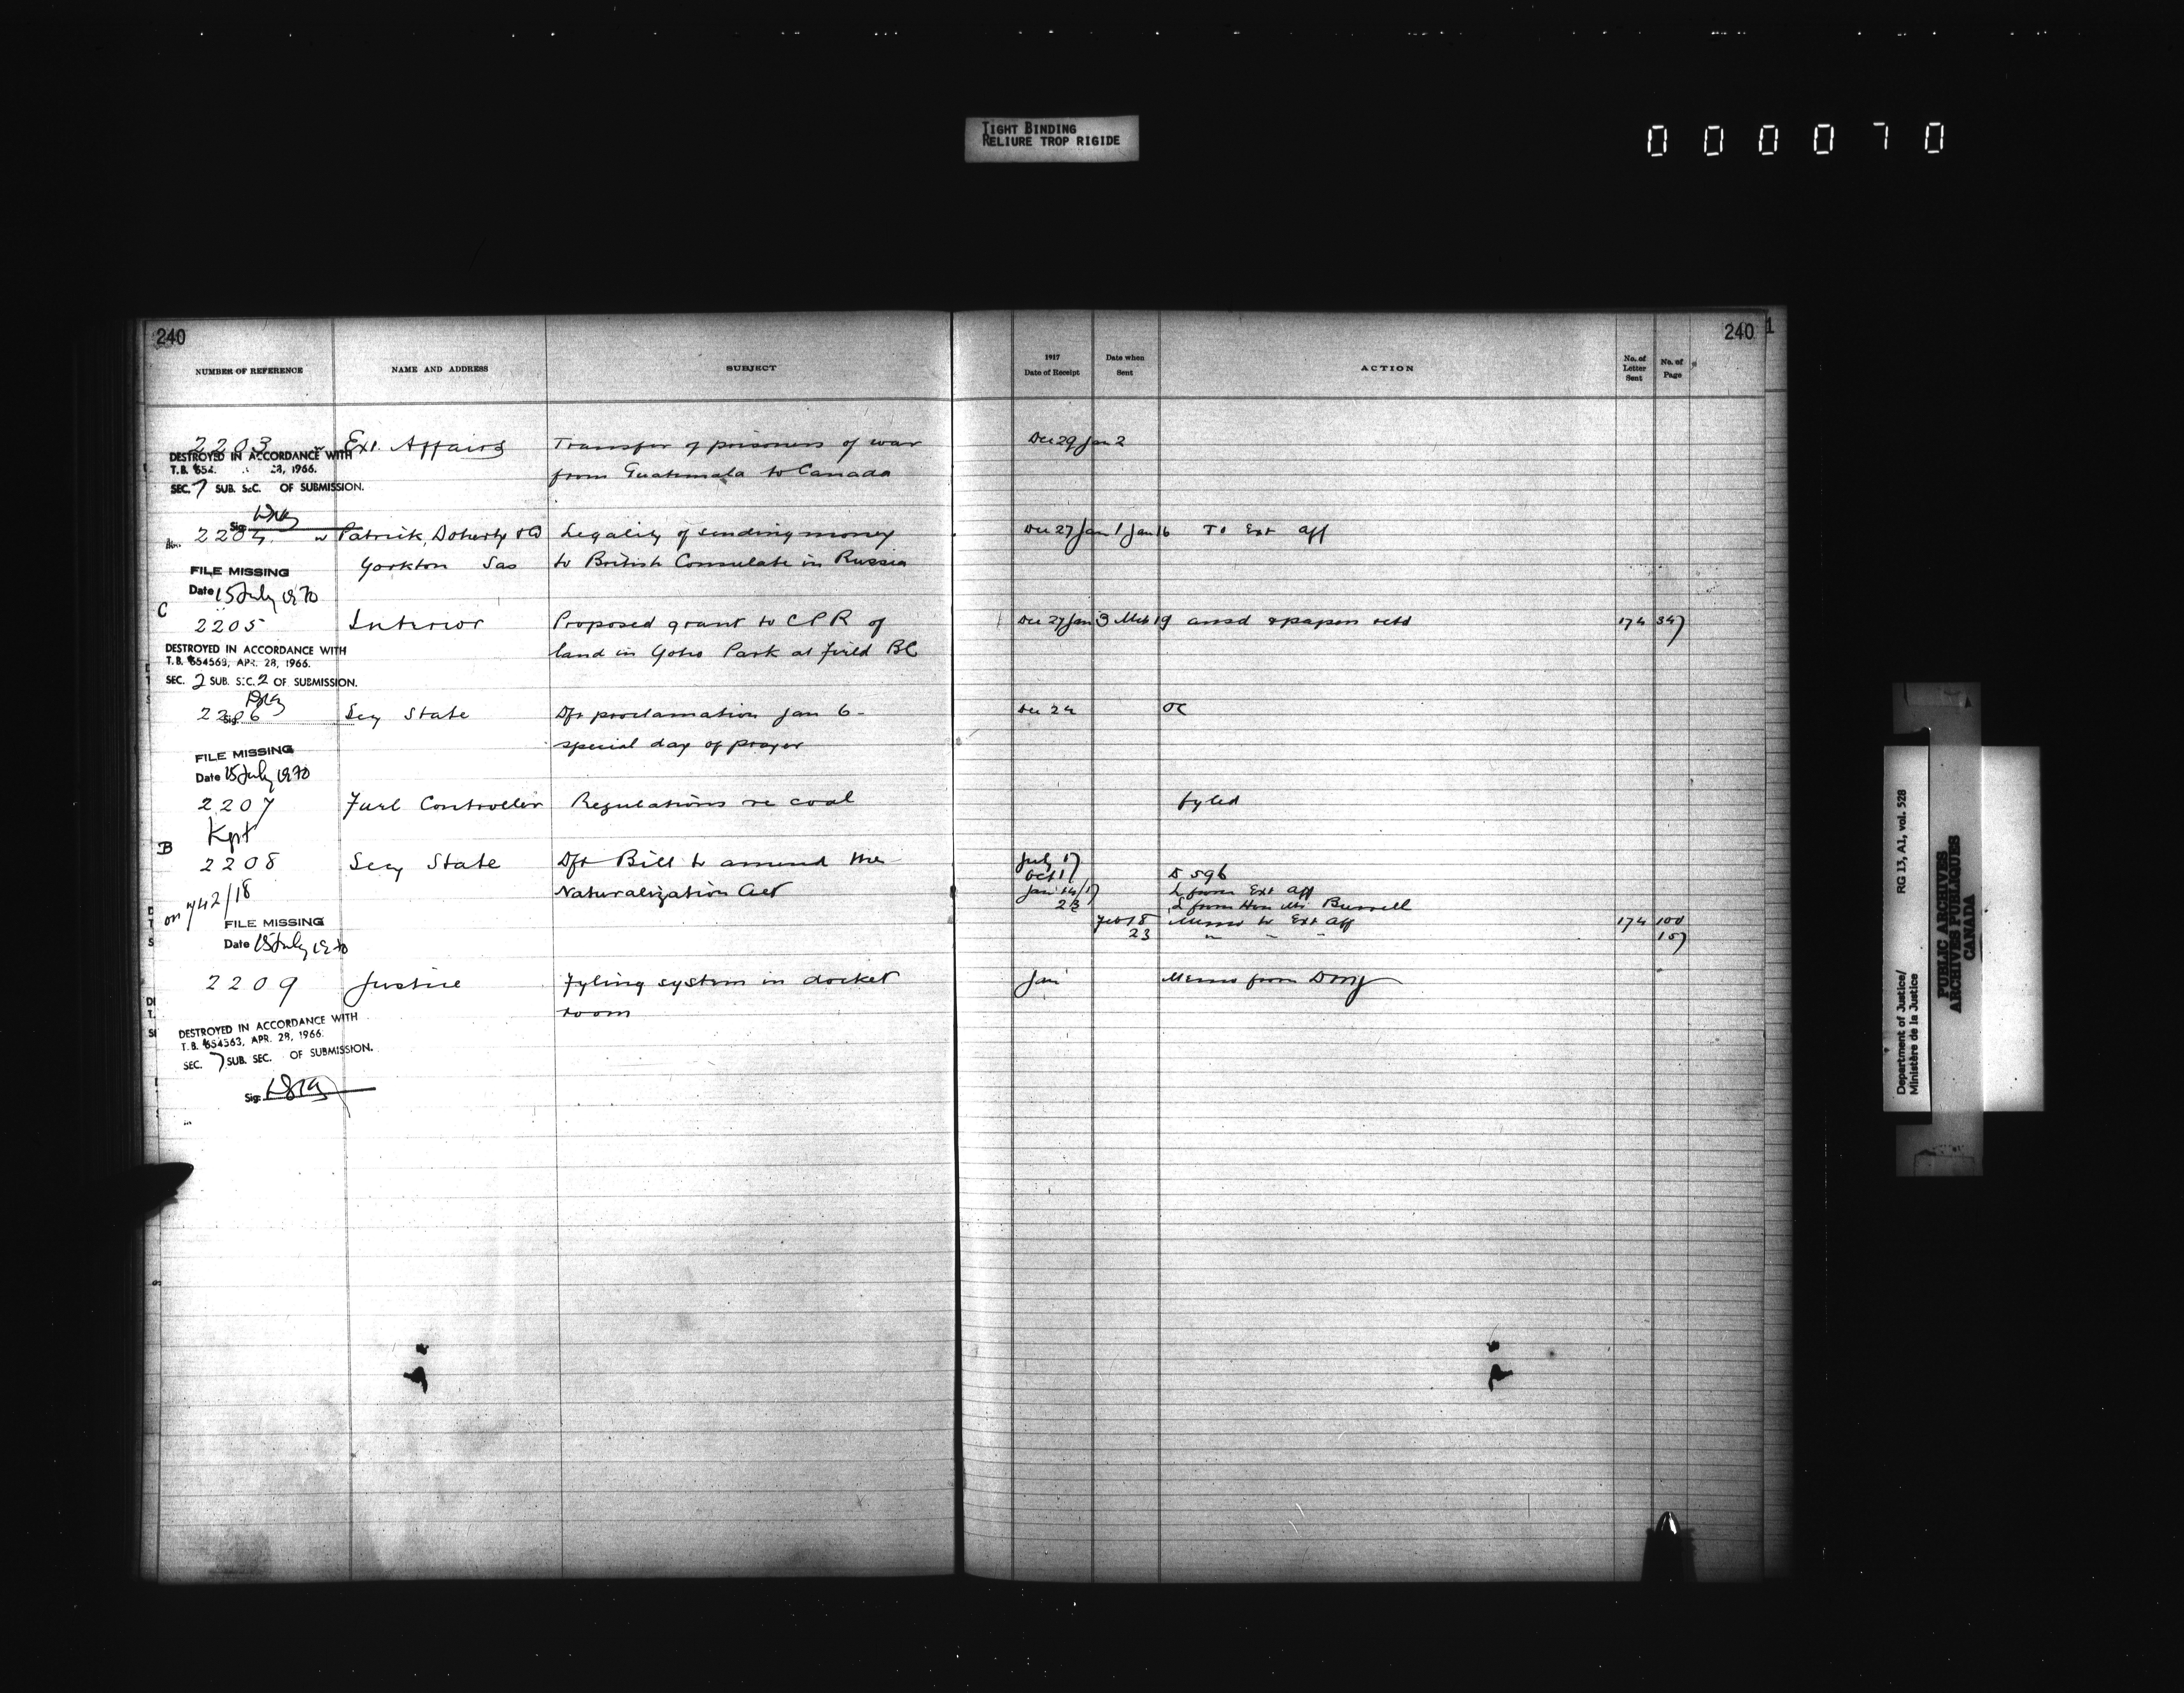 TIGHT BINDING
RELIURE TROP RIGIDE
000070
240
240
1
NUMBER OF REFERENCE NAME AND ADDRESS SUBJECT 1917 Date of Receipt Date when Sent ACTION No. of Letter Sent No. of Page
2203 Ext. Affairs Transfer of prisoners of war Dec 29 Jan 2
from Guatemala to Canada
DESTROYED IN ACCORDANCE WITH
T.B. 654 28, 1966.
SEC. 7 SUB. SEC. OF SUBMISSION.
Sig.
2204 Patrick, Doherty & Co Legality of sending money Dec 27 Jan 1 Jan 16 To Ext Aff
Yorkton Sas to British Consulate in Russia
FILE MISSING
Date 15 July 1970
C
2205 Interior Proposed grant to CPR of Dec 27 Jan 3 Mch 19 ansd & papers retd 174 347
land in Yoho Park at Field BC
DESTROYED IN ACCORDANCE WITH
T.B. 654563, APR. 28, 1966.
SEC. 2 SUB. SEC. 2 OF SUBMISSION.
Sig.
2206 Secy State Dft proclamation Jan 6- Dec 24 OC
special day of prayer
FILE MISSING
Date 15 July 1970
2207 Fuel Controller Regulations re coal fyled
Kept
B
2208 Secy State Dft Bill to amend the July 17
Oct 17 D 596
Naturalization Act Jan 14/17 L from Ext Aff
23 L from Hon Mr. Burrell
on 742/18
Feb 18 Memo to Ext Aff 174 100
23 " " " 157
FILE MISSING
Date 15 July 1970
2209 Justice Fyling system in docket Jan Memo from DMJ
room
DESTROYED IN ACCORDANCE WITH
T.B. 654563, APR. 28, 1966.
SEC. 7 SUB. SEC. OF SUBMISSION.
Sig.
Department of Justice/
Ministère de la Justice
RG 13, A1, vol. 528
PUBLIC ARCHIVES
ARCHIVES PUBLIQUES
CANADA